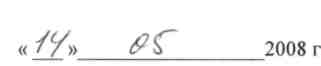 «14» 05 2008 г